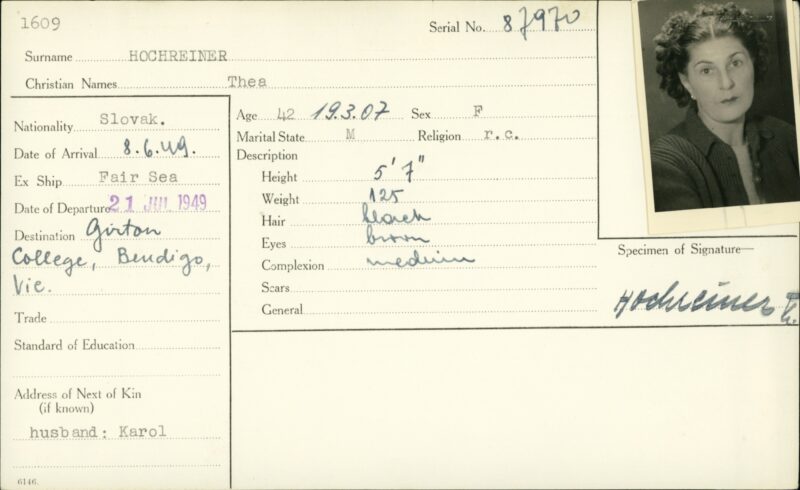 1609
Serial No. 87970
Surname HOCHREINER
Christian Names Thea
Nationality Slovak.
Date of Arrival 8.6.49.
Ex Ship Fair Sea
Date of Departure 21 JUL 1949
Destination Girton
College, Bendigo,
Vic.
Trade
Standard of Education
Address of Next of Kin
(if known)
husband: Karol
6146.
Age 42 19.3.07 Sex F
Marital State M Religion r.c.
Description
Height 5' 7"
Weight 125
Hair black
Eyes brown
Complexion medium
Scars
General
Specimen of Signature—
Hochreiner T.